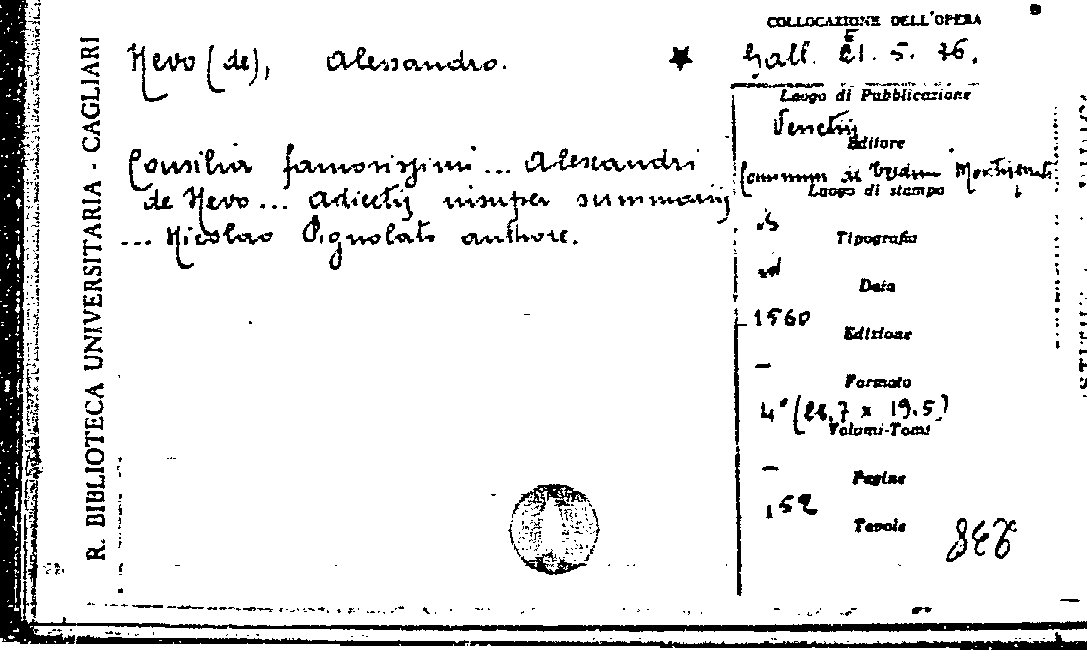 COLLOCAZIONE DELL'OPERA
R. BIBLIOTECA UNIVERSITARIA - CAGLIARI
Nevo (de), Alessandro.
Gall. 21. 5. 76.
Luogo di Pubblicazione
Venetiis
Editore
Consilia famosissimi... Alexandri
de Nevo... Adiectis insuper summariis
... Nicolao Pignolato authore.
Luogo di stampa
Tipografia
Data
1560
Edizione
—
Formato
4° (28,7 x 19.5)
Volumi-Tomi
—
Pagine
152
Tavole